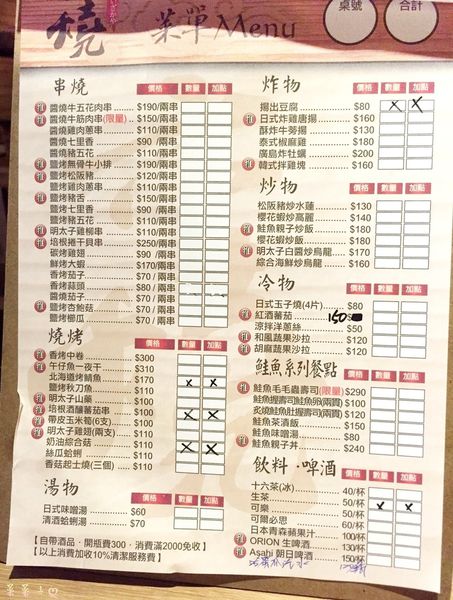 燒 菜單Menu
桌號
合計
串燒 價格 數量 加點
推 醬燒牛五花肉串 $190/兩串
推 醬燒牛筋肉串(限量) $150/兩串
醬燒雞肉蔥串 $110/兩串
醬燒七里香 $90 /兩串
醬燒豬五花 $110/兩串
推 鹽烤無骨牛小排 $190/兩串
推 鹽烤松阪豬 $120/兩串
鹽烤雞肉蔥串 $110/兩串
推 鹽烤豬舌 $150/兩串
鹽烤七里香 $90 /兩串
鹽烤豬五花 $110/兩串
推 明太子雞柳串 $110/兩串
推 培根捲干貝串 $250/兩串
碳烤雞翅 $90 /兩串
鮮烤大蝦 $170/兩串
香烤茄子 $70 /兩串
香烤蒜頭 $80 /兩串
醬燒茄子 $70 /兩串
推 鹽烤杏鮑菇 $70 /兩串
鹽烤櫛瓜 $70 /兩串
燒烤 價格 數量 加點
香烤中卷 $300
推 午仔魚一夜干 $310
北海道烤鯖魚 $170 x x
鹽烤秋刀魚 $110
推 明太子山藥 $100
推 培根酒釀蕃茄串 $100 x x
推 帶皮玉米筍(6支) $100
推 明太子雞翅(兩支) $110
奶油綜合菇 $110 x x
絲瓜蛤蜊 $110
香菇起士燒(三個) $110
湯物 價格 數量 加點
日式味噌湯 $60
清酒蛤蜊湯 $70
【自帶酒品‧開瓶費300,消費滿2000免收】
【以上消費加收10%清潔服務費】
炸物 價格 數量 加點
揚出豆腐 $80 x x
推 日式炸雞唐揚 $160
酥炸牛蒡揚 $130
泰式椒麻雞 $180
廣島炸牡蠣 $200
推 韓式拌雞塊 $160
炒物 價格 數量 加點
松阪豬炒水蓮 $130
櫻花蝦炒高麗 $140
推 鮭魚親子炒飯 $180
櫻花蝦炒飯 $180
推 明太子白醬炒烏龍 $170
綜合海鮮炒烏龍 $160
冷物 價格 數量 加點
日式玉子燒(4片) $80
推 紅酒蕃茄 150
涼拌洋蔥絲 $50
推 和風蔬果沙拉 $120
推 胡麻蔬果沙拉 $120
鮭魚系列餐點 價格 數量 加點
推 鮭魚毛毛蟲壽司(限量) $290
鮭魚握壽司|鮭魚卵(兩貫) $100
推 炙燒鮭魚肚握壽司(兩貫) $120
鮭魚茶漬飯 $150
鮭魚味噌湯 $80
推 鮭魚親子丼 $240
飲料‧啤酒 價格 數量 加點
十六茶(冰) 40/杯
生茶 50/杯
可樂 50/杯 x x
可爾必思 60/杯
日本青森蘋果汁 100/杯
推 ORION 生啤酒 130/杯
推 Asahi 朝日啤酒 150/杯